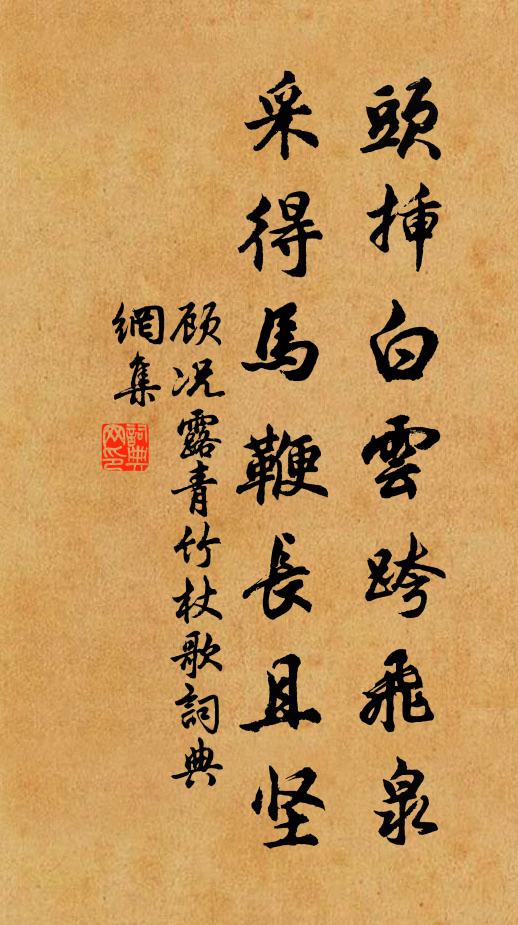 頭插白雲跨飛泉
采得馬鞭長且坚
顾况露青竹杖歌詞典
網集
詞典
网印